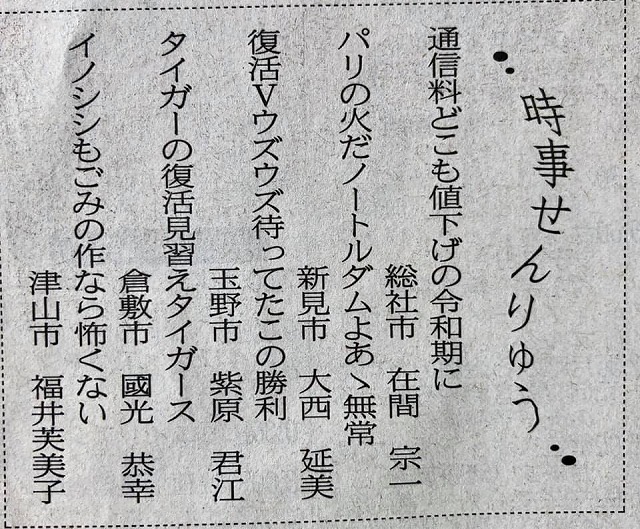 時事せんりゅう
通信料どこも値下げの令和期に
総社市　在間　宗一
パリの火だノートルダムよあゝ無常
新見市　大西　延美
復活Vウズウズ待ってたこの勝利
玉野市　紫原　君江
タイガーの復活見習えタイガース
倉敷市　國光　恭幸
イノシシもごみの作なら怖くない
津山市　福井芙美子